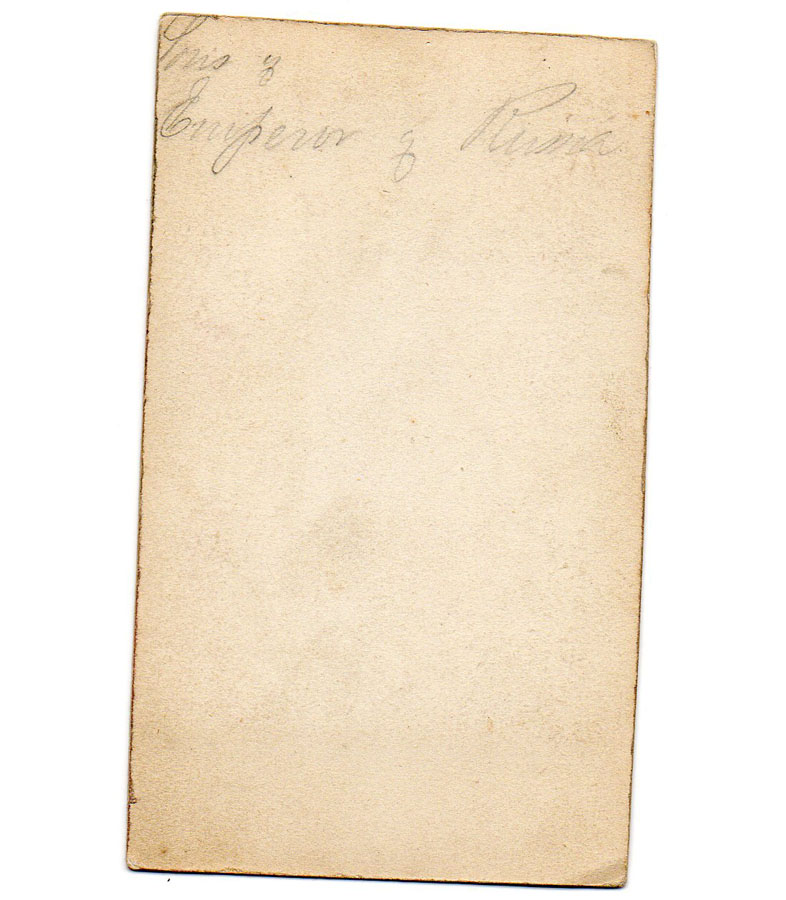 Sons of
Emperor of Russia